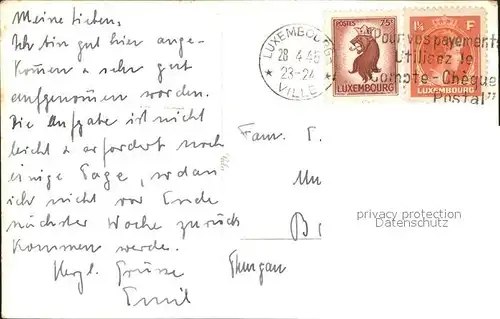 Meine Lieben,
Ich bin gut hier ange-
kommen & sehr gut
aufgenommen worden.
Die Aufgabe ist nicht
leicht & erfordert noch
einige Tage, sodan
ich nicht vor Ende
nächster Woche zurück
kommen werde.
Herzl. Grüsse
Emil
LUXEMBOURG
28 4 46
23-24
VILLE
POSTES 75c
LUXEMBOURG
1¼ F
LUXEMBOURG
"Pour vos payements
Utilisez le
Compte-Chèque
Postal"
Fam.
B
Thurgau
privacy protection
Datenschutz